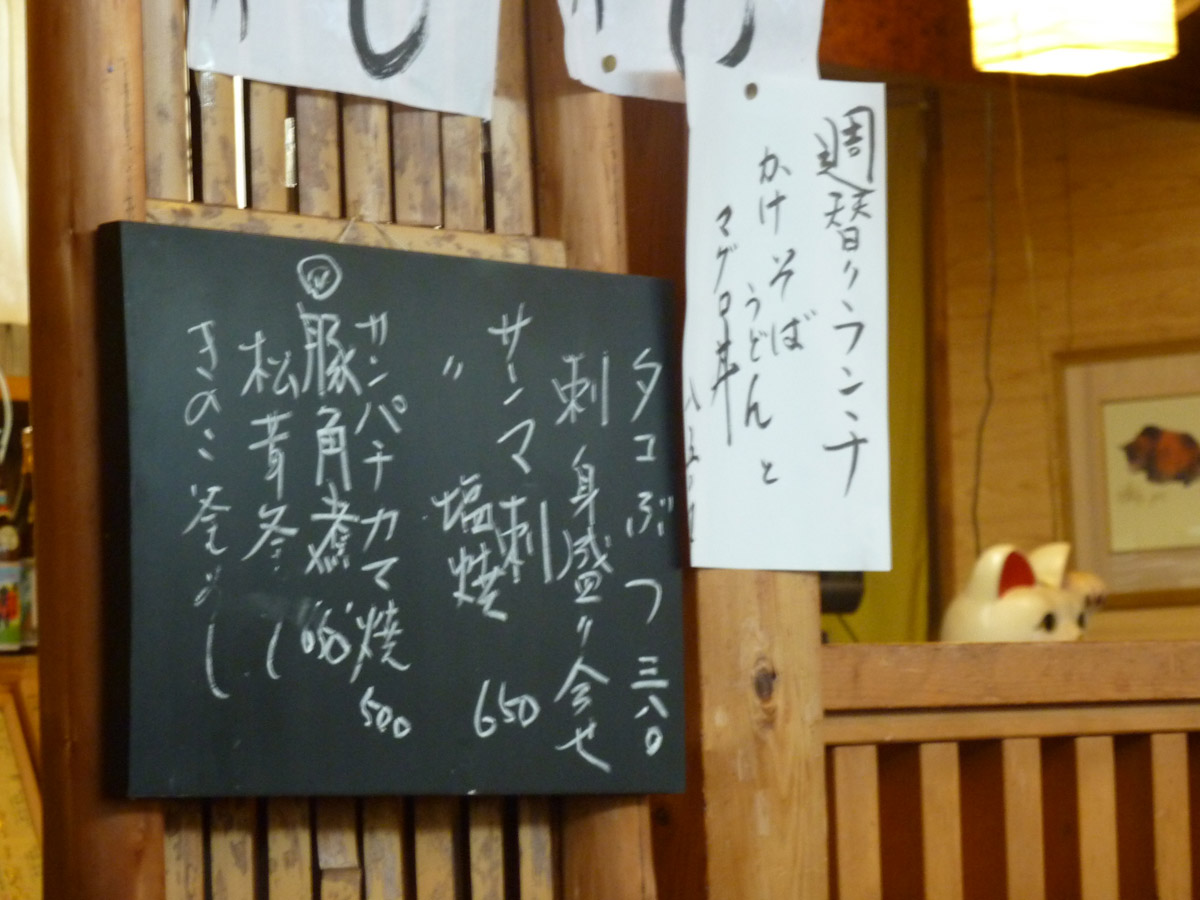 週替りランチ
かけそば
うどんと
マグロ丼
タコぶつ 三八〇
刺身盛り合せ
サンマ刺
〃 塩焼 650
カンパチカマ焼 500
豚角煮
松茸
きのこ釜めし